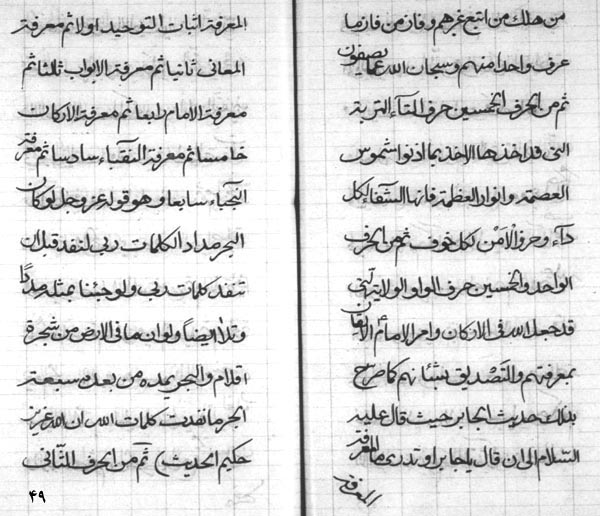 من هلك من اتبع غيرهم وفاز من فاز بما
عرف واحدا منهم وسبحان الله عما يصيفون
ثم من الحرف الخمسين حرف التآء التربة
التى قد اخذها الاخذ بما اذنوا شموس
العصمة وانوار العظمة فانها الشفآء لكل
دآء وحرز الأمن لكل خوف ثم من الحرف
الواحد والخمسين حرف الواو الولاية التى
قد جعل الله فى الاركان وامر الامام الايقان
بمعرفتهم والتصديق بشئانهم كما صرح
بذلك حديث الجابر حيث قال عليه
السلام الى ان قال ياجابر اوتدرى ما المعرفة
المعرفة
المعرفة اثبات التوحيد اولا ثم معرفة
المعانى ثانيا ثم معرفة الابواب ثالثا ثم
معرفة الامام رابعا ثم معرفة الاركان
خامسا ثم معرفة النقباء سادسا ثم معرفة
النجباء سابعا وهو قوله عز وجل لوكان
البحر مداد الكلمات ربى لنفد قبل ان
تنفد كلمات ربى ولو جئنا بمثله مددًا
وتلا ايضاً ولو ان ما فى الارض من شجرة
اقلام والبحر يمده من بعده سبعة
ابحر ما نفدت كلمات الله ان الله عزيز
حكيم الحديث) ثم من الحرف الثانى
۴۹